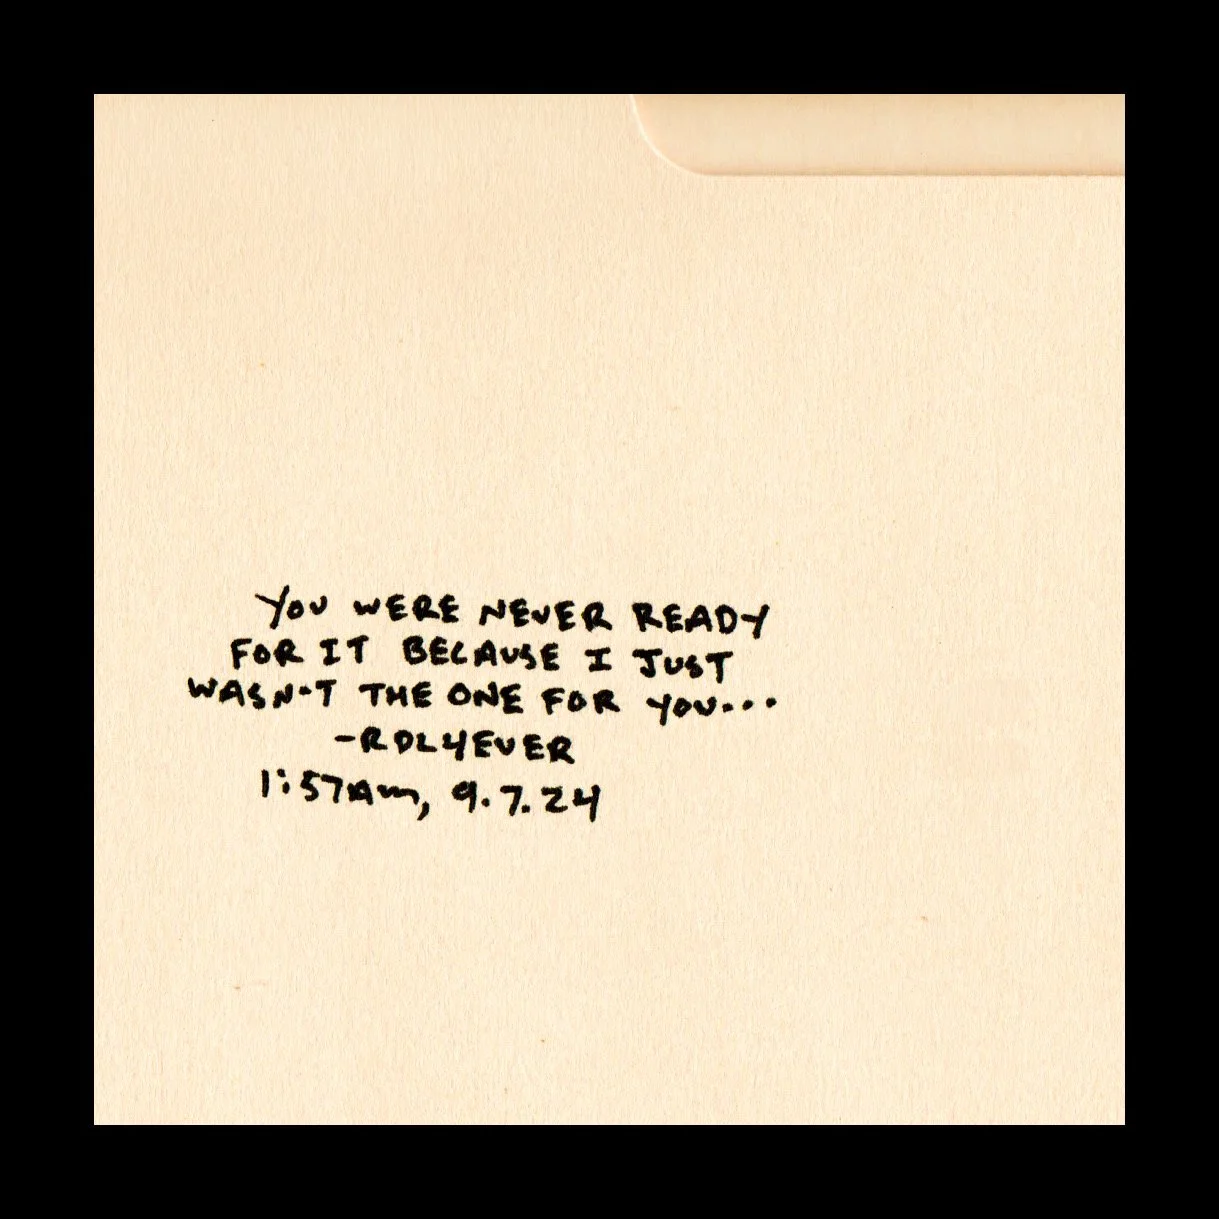 YOU WERE NEVER READY
FOR IT BECAUSE I JUST
WASN'T THE ONE FOR YOU...
-RDL4EVER
1:57AM, 9.7.24